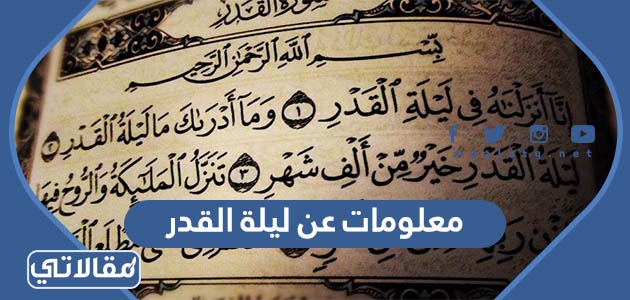 سورة القدر
بِسْمِ ٱللَّهِ ٱلرَّحْمَٰنِ ٱلرَّحِيمِ
إِنَّآ أَنزَلْنَٰهُ فِى لَيْلَةِ ٱلْقَدْرِ ١ وَمَآ أَدْرَىٰكَ مَا لَيْلَةُ ٱلْقَدْرِ ٢
لَيْلَةُ ٱلْقَدْرِ خَيْرٌ مِّنْ أَلْفِ شَهْرٍ ٣ تَنَزَّلُ ٱلْمَلَٰٓئِكَةُ وَٱلرُّوحُ فِيهَا
معلومات عن ليلة القدر
مقالاتي